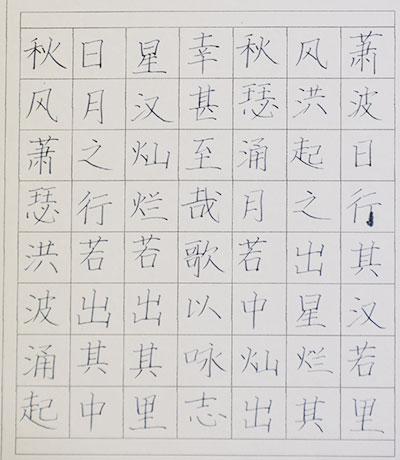 秋风萧瑟洪波涌起
日月之行若出其中
星汉灿烂若出其里
幸甚至哉歌以咏志
秋风萧
瑟洪波
涌起日
月之行
若出其
中星汉
灿烂若
出其里